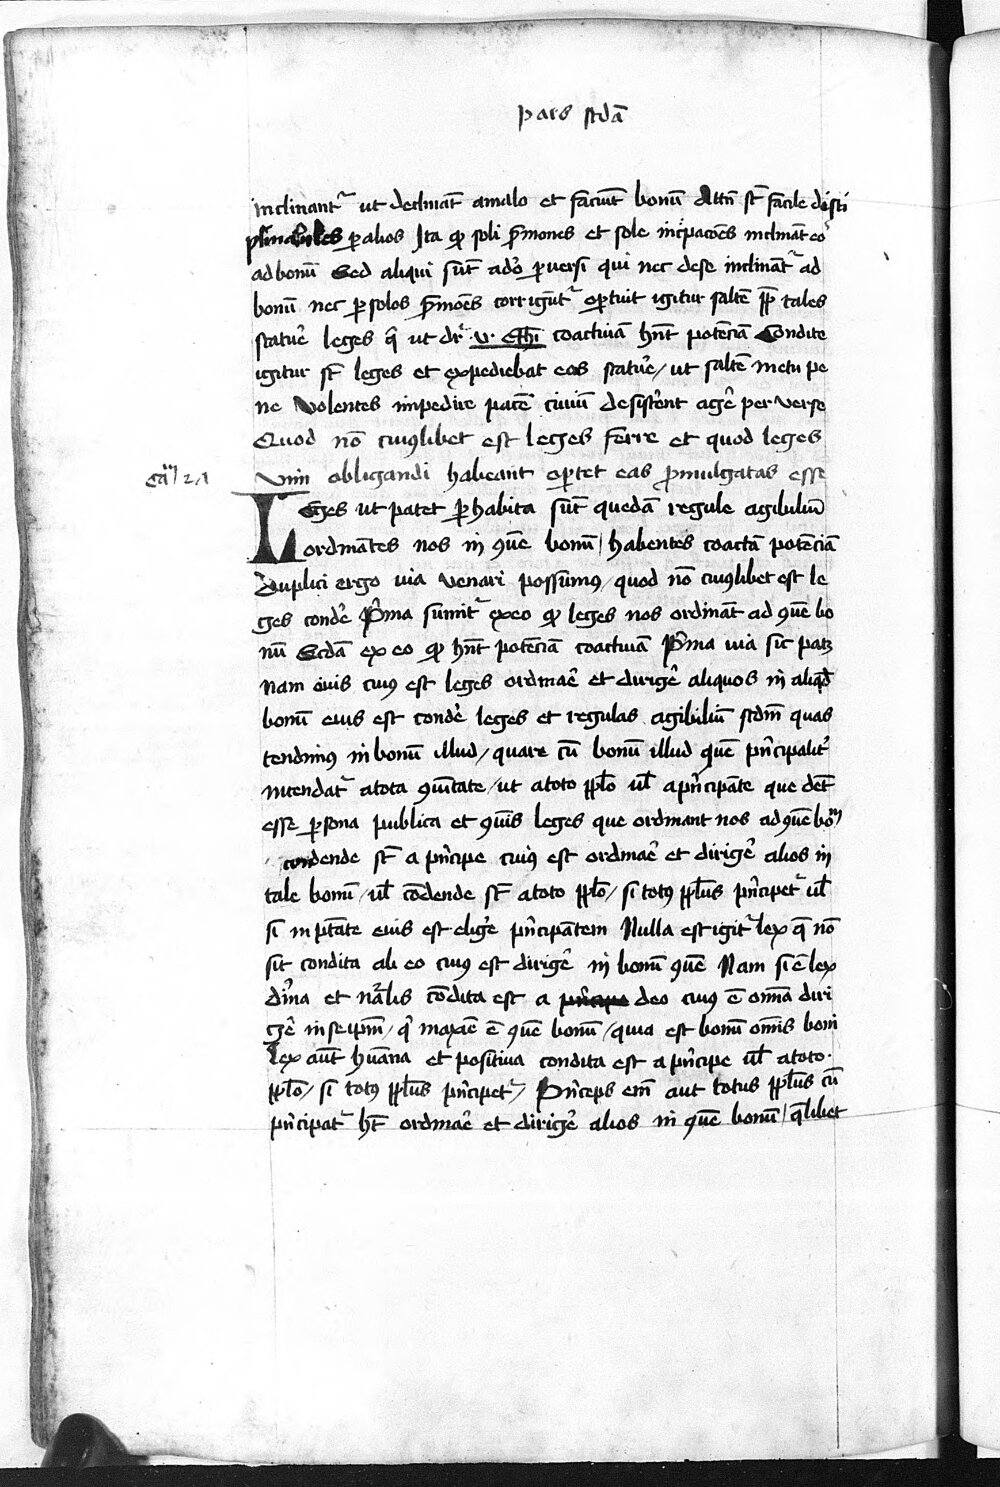 pars scd̄a
inclinantᷣ ut declināt amalo et faciūt bonū Attn̄ st̄ facile disci
plinabiles ꝑ alios Ita ꝙ soli ẜmones et sole incͥpacōes inclināt eoˢ
ad bonū Sed aliqui sūt adeo ꝑversi qui nec de se inclinātᷣ ad
bonū nec ꝑ solos ẜmōes corrigūtᷣ oꝑtuit igitur saltē ꝓp̄ tales
statue᷑ leges q̄ ut drᷣ .v. Eth̄i coactiuā hn̄t potēciā Condite
igitur st̄ leges et expediebat eas statue᷑ / ut saltē metu pe
ne Volentes impedire pacē ciuiū desiste᷑nt age᷑ per verse
Quod nō cuiꝯlibet est leges ferre et quod leges
vim obligandi habeant oꝑtet eas ꝓmulgatas esse
Ca^m 27
LEges ut patet ꝑ habita sūt quedā regule agibiliū
ordinātes nos in ꝯue᷑ bonū / habentes coactā potēciā
duplici ergo via venari possumꝯ / quod nō cuiꝯlibet est le
ges conde᷑ p̄ma sumitᷣ ex eo ꝙ leges nos ordināt ad ꝯue᷑ bo
nū Scd̄a ex eo ꝙ hn̄t potēciā coactiuā p̄ma via sic patꝫ
Nam oīs cuiꝯ est leges ordinae᷑ et dirige᷑ aliquos in aliqd̄
bonū eius est conde᷑ leges et regulas agibiliū scd̄m quas
tendimꝯ in bonū illud / quare cū bonū illud ꝯue᷑ pn̄cipalitᷣ
intendatᷣ a tota ꝯuītate / ut a toto pp̄lo ul̄ a pn̄cipāte que dēt
esse ꝑsona publica et ꝯuīs leges que ordinant nos ad ꝯue᷑ bo^m
condende st̄ a pn̄cipe cuiꝯ est ordinae᷑ et dirige᷑ alios in
tale bonū / ul̄ cōdende st̄ a toto pp̄lo / si totꝯ pp̄lus pn̄cipetᷣ ul̄
si in ptāte eius est elige᷑ pn̄cipātem Nulla est igitᷣ lex q̄ nō
sit condita ab eo cuiꝯ est dirige᷑ in bonū ꝯue᷑ Nam si ē lex
diīna et nāl̄is cōdita est a deo cuiꝯ ē om̄ia diri
ge᷑ in seipm̄ / qͥ maxīe ē ꝯue᷑ bonū / quia est bonū om̄is boni
Lex aūt hūana et positiua condita est a pn̄cipe ul̄ a toto
pp̄lo / si totꝯ pp̄lus pn̄cipetᷣ / pn̄ceps em̄ aut totus pp̄lus cū
pn̄cipatᷣ ht̄ ordinae᷑ et dirige᷑ alios in ꝯue᷑ bonū / q̄libet